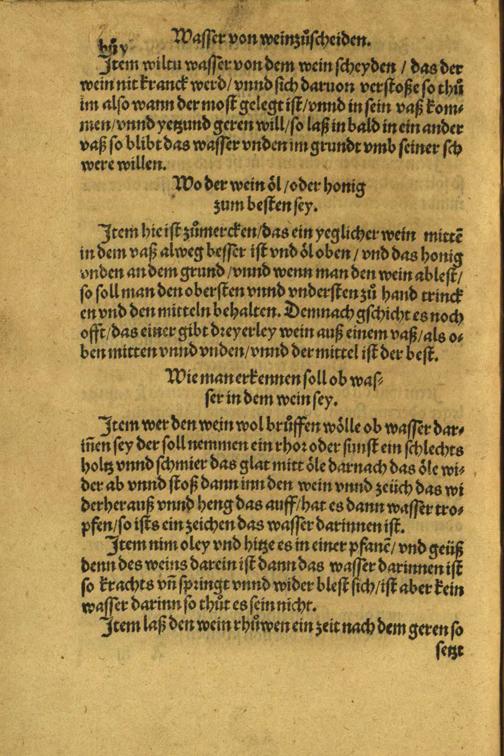 Wasser von weinzůscheiden.
Item wiltu wasser von dem wein scheyden / das der
wein nit kranck werd / vnnd sich daruon verstoße so thů
im also wann der most gelegt ist / vnnd in sein vaß kom-
men / vnnd yetzund geren will / so laß in bald in ein ander
vaß so blibt das wasser vnden im grundt vmb seiner sch
were willen.
Wo der wein öl / oder honig
zum besten sey.
Item hie ist zůmercken / das ein yeglicher wein mittē
in dem vaß alweg besser ist vnd öl oben / vnd das honig
vnden an dem grund / vnnd wenn man den wein ablest /
so soll man den obersten vnnd vndersten zů hand trinck
en vnd den mitteln behalten. Demnach gschicht es noch
offt / das einer gibt dreyerley wein auß einem vaß / als o-
ben mitten vnnd vnden / vnnd der mittel ist der best.
Wie man erkennen soll ob was-
ser in dem wein sey.
Item wer den wein wol brůffen wölle ob wasser dar-
iñen sey der soll nemmen ein rhor oder sunst ein schlechts
holtz vnnd schmier das glat mitt öle darnach das öle wi-
der ab vnnd stoß dann inn den wein vnnd zeüch das wi
derherauß vnnd heng das auff / hat es dann wasser tro-
pfen / so ists ein zeichen das wasser darinnen ist.
Item nim oley vnd hitze es in einer pfanē / vnd geüß
denn des weins darein ist dann das wasser darinnen ist
so krachts vñ springt vnnd wider blest sich / ist aber kein
wasser darinn so thůt es sein nicht.
Item laß den wein rhůwen ein zeit nach dem geren so
setzt